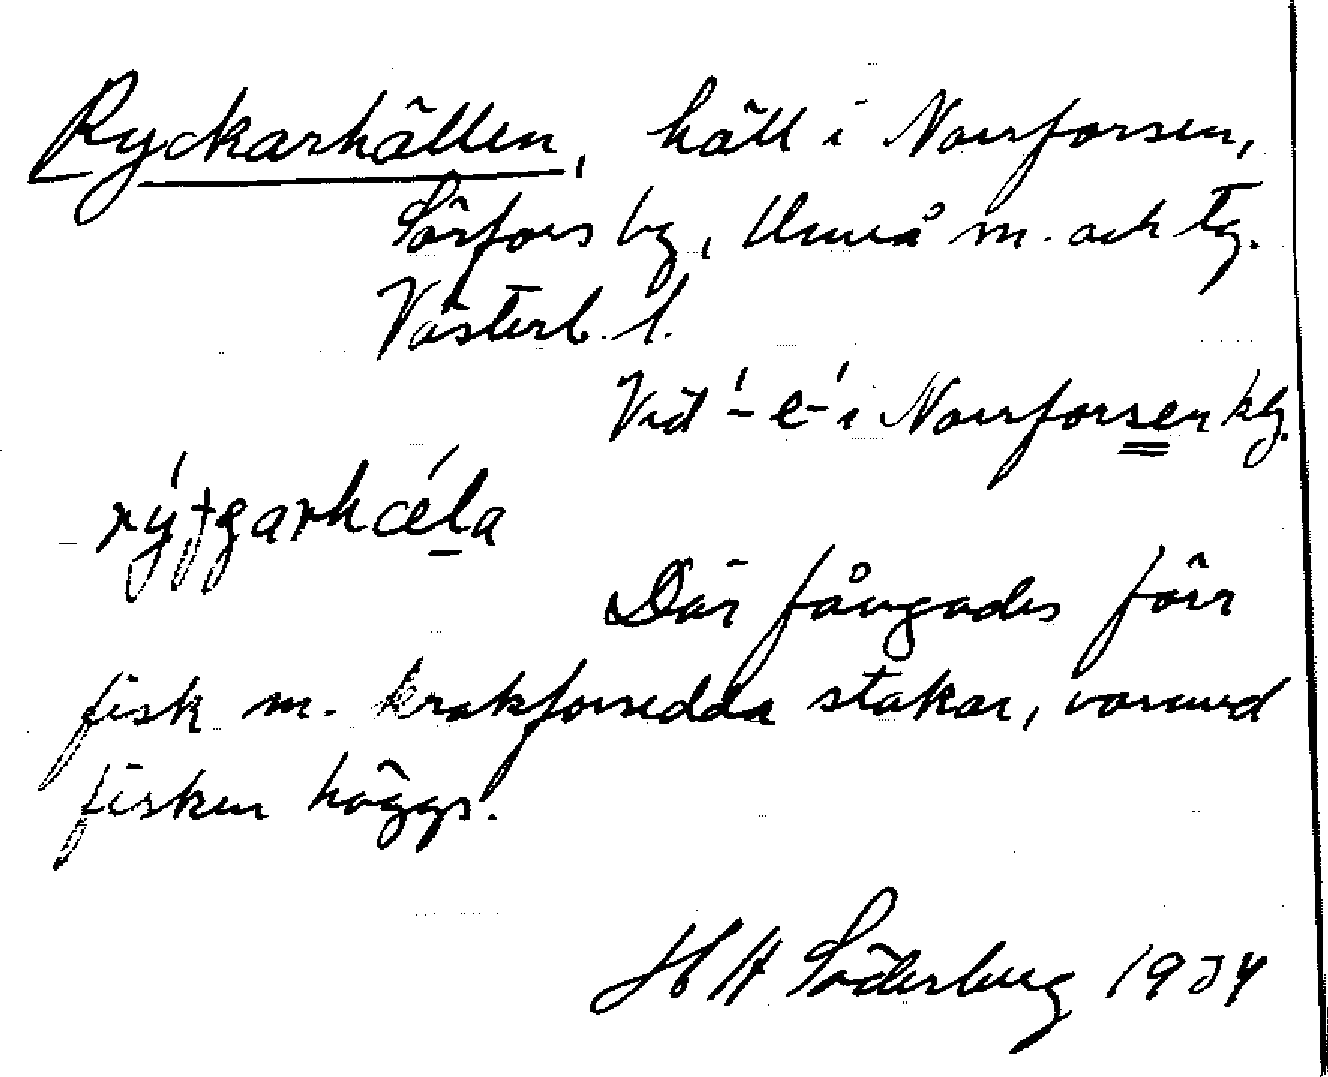 Ryckarhällen, häll i Norrforsen,
Sörfors by, Umeå m. och tg.
Västerb. l.
Vid -e- i Norrforsen klg.
rý́ƭgarhǽla
Där fångades förr
fisk m. krokförsedda stakar, varmed
fisken höggs.
H H Söderberg 1934